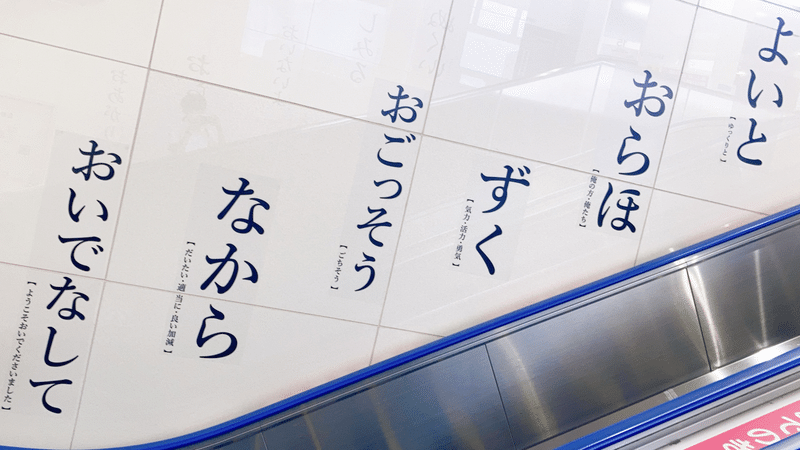 よいと
【ゆっくりと】
おらほ
【俺の方・俺たち】
ずく
【気力・活力・勇気】
おごっそう
【ごちそう】
なから
【だいたい・適当に・良い加減】
おいでなして
【ようこそおいでくださいました】